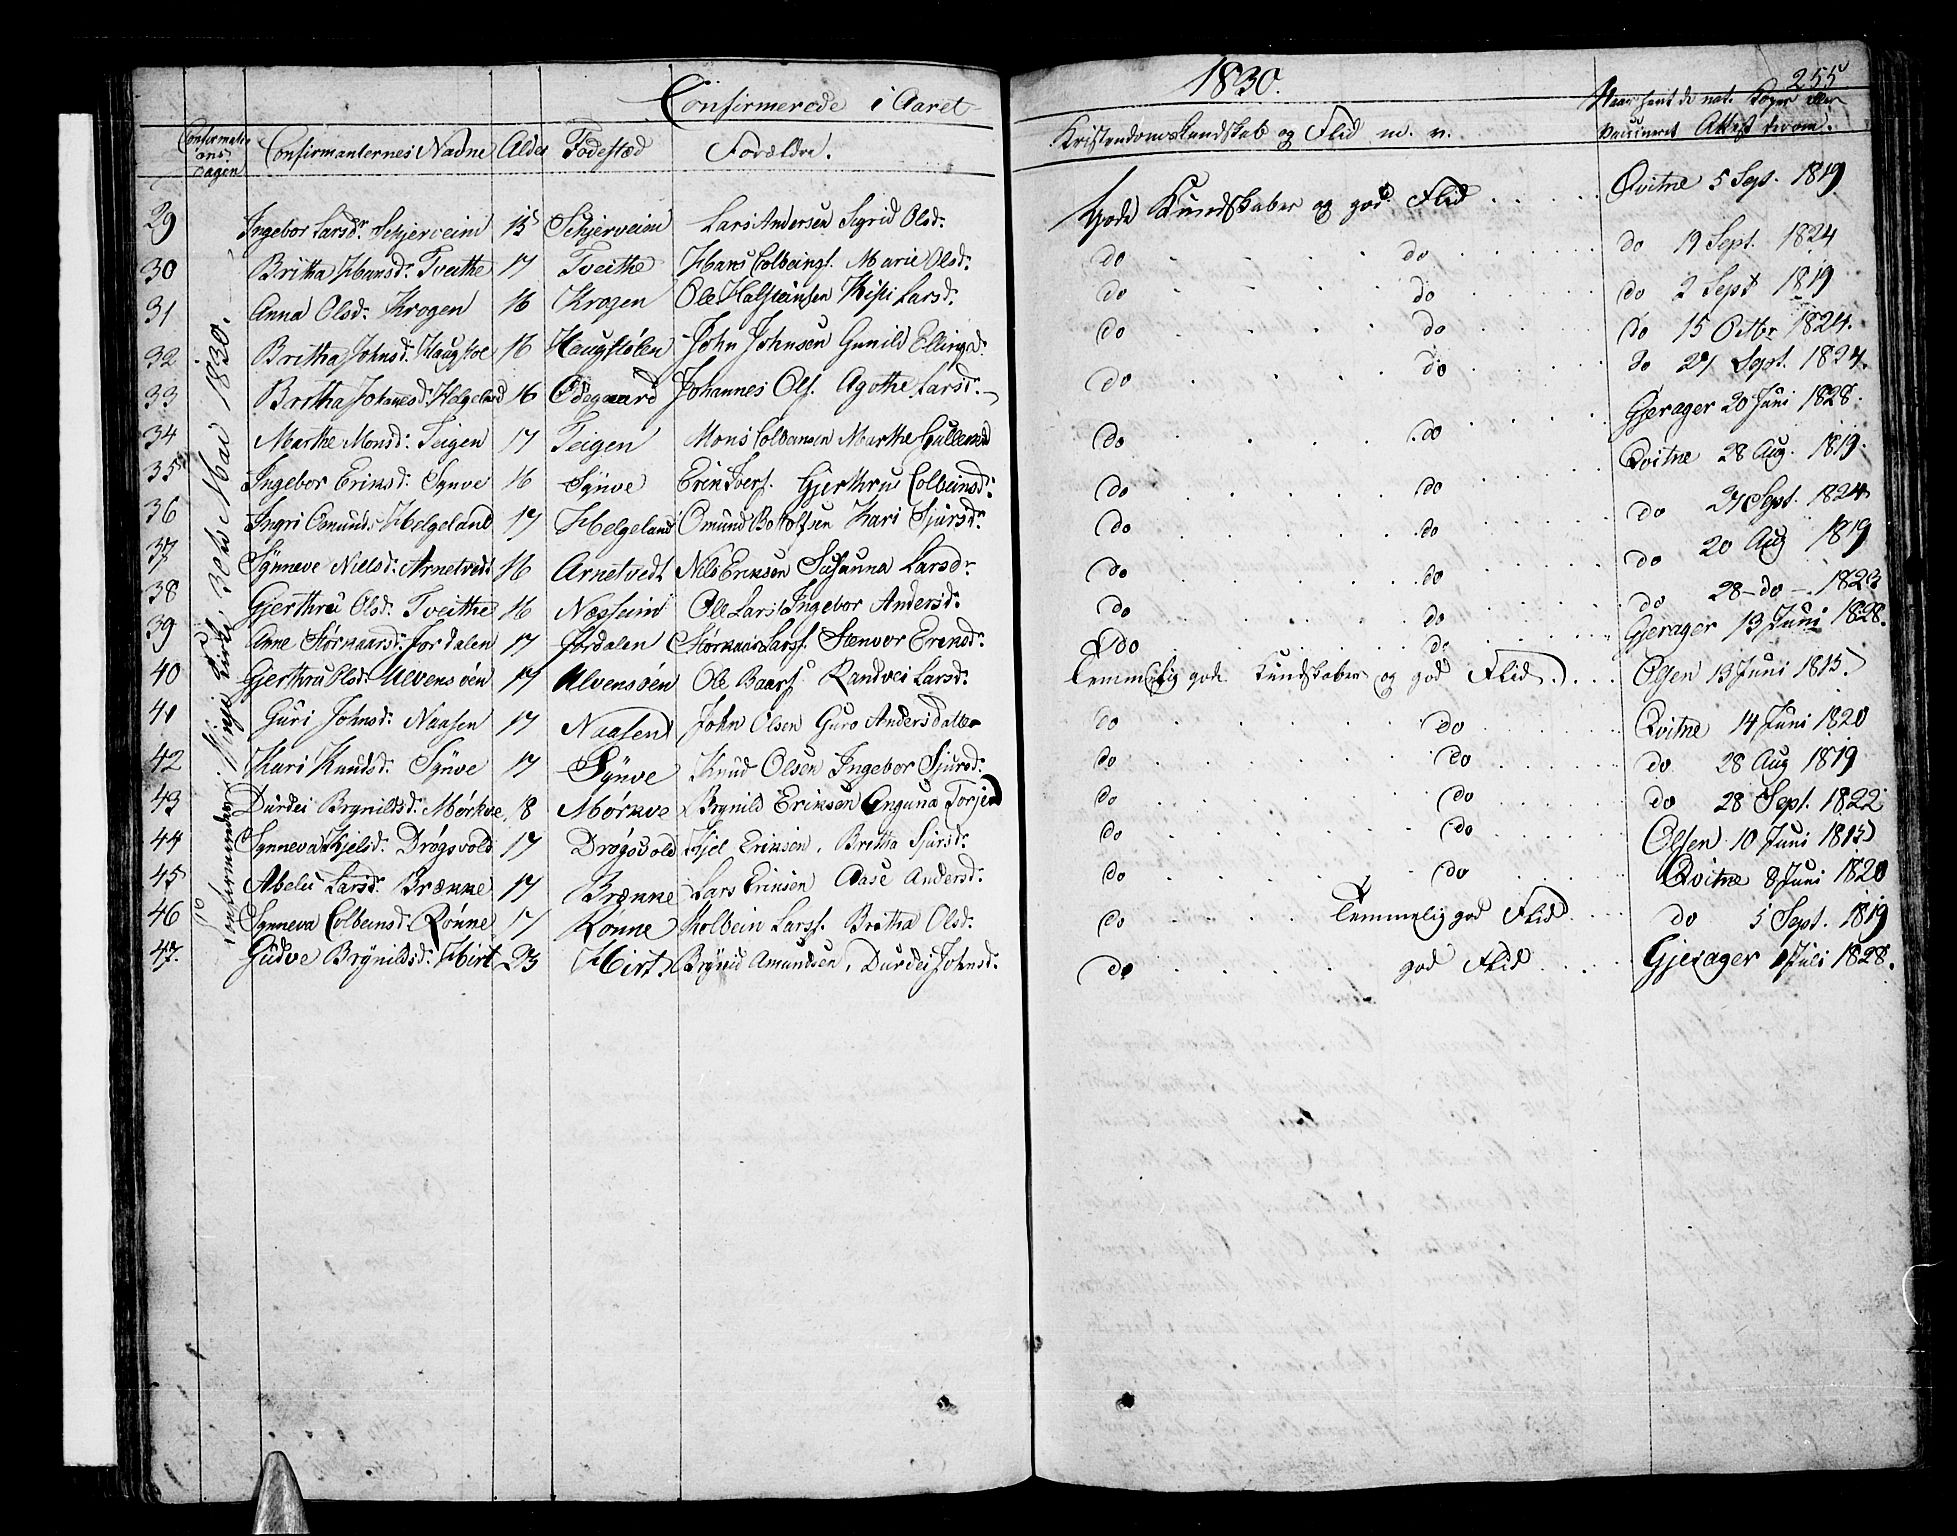 Confirmerede i Aaret 1830.
255
Confirmati
ons
dagen
Confirmanternes Navne Alder Fødestæd Forældre.
Kristendomskundskab og Flid m. v.
Naar havt de nat. Koper eller
vaccineret Attest derom.
29 Ingebor Larsdr. Schjerveim 15 Schjerveim Lars Andersen Sigrid Olsdr. Gode Kundskaber og god Flid Qvitne 5 Sept. 1819
30 Britha Hansdr. Tveithe 17 Tveithe Hans Colbeins. Marie Olsdr. do do do 19 Sept. 1824
31 Anna Olsdr. Krogen 16 Krogen Ole Halsteinsen Kisti Larsdr. do do do 2 Sept 1819
32 Britha Johnsd. Haugstøl 16 Haugstølen John Johnsen Gunild Ellingsd. do do do 15 Octbr 1824.
33 Britha Johannesd. Helgeland 16 Ødegaard Johannes Ols. Agothe Larsdr. do do do 27 Sept. 1824.
34 Marthe Monsd. Teigen 17 Teigen Mons Colbensen Marthe Gullensd do do Gjerager 20 Juni 1828.
35 Ingebor Eriksd. Synve 16 Synve Erik Ivers. Gjerthrus Colbeinsdr. do do Qvitne 28 Aug. 1819.
36 Ingri Omunds. Helgeland 17 Helgeland Omund Botolfsen Kari Sjursdr. do do do 27 Sept. 1824
37 Synneve Nielsd. Arnetvedt 16 Arnetvedt Nils Eriksen Susanna Larsdr. do do do 20 Aug 1819
38 Gjerthru Olsd. Tveithe 16 Næsheim Ole Lars. Ingebor Andersdr. do do do 28 - do - 1823
39 Anne Størkaarsd. Jordalen 17 Jordalen Størkaar Larss. Stenvor Ereksdr. do do Gjerager 13 Juni 1828.
40 Gjerthru Olsd. Ulvensøen 17 Ulvensøen Ole Baars. Randvei Larsdr. Temmelig gode Kundskaber og god Flid Olsen 13 Juni 1815
41 Guri Johnsd. Naasen 17 Naasen John Olsen Guro Andersdatter do do Qvitne 14 Juni 1820
42 Kari Knudsd. Synve 17 Synve Knud Olsen Ingebor Sjursd. do do do 28 Aug 1819
43 Durdei Brynildsd. Mørkve 18 Mørkve Brynild Eriksen Anguna Torjersd do do do 28 Sept. 1822
44 Synneva Kjelsd. Drøgsvold 17 Drøgsvold Kjel Eriksen. Britha Sjursdr. do do Olsen 10 Juni 1815
45 Abelu Larsd. Brænne 17 Brænne Lars Eriksen Aase Andersd. do do Qvitne 8 Juni 1820
46 Synneva Colbeinsd. Rønne 17 Rønne Kolbein Larss. Britha Olsd. do Temmelig god Flid do 5 Sept. 1819
47. Gudve Brynildsd. Hirt 23 Hirt Brynild Amundsen. Durdei Johnsd. do god Flid Gjerager Juli 1828.
Confirmerede i Vinje Kirke 30te Mai 1830.